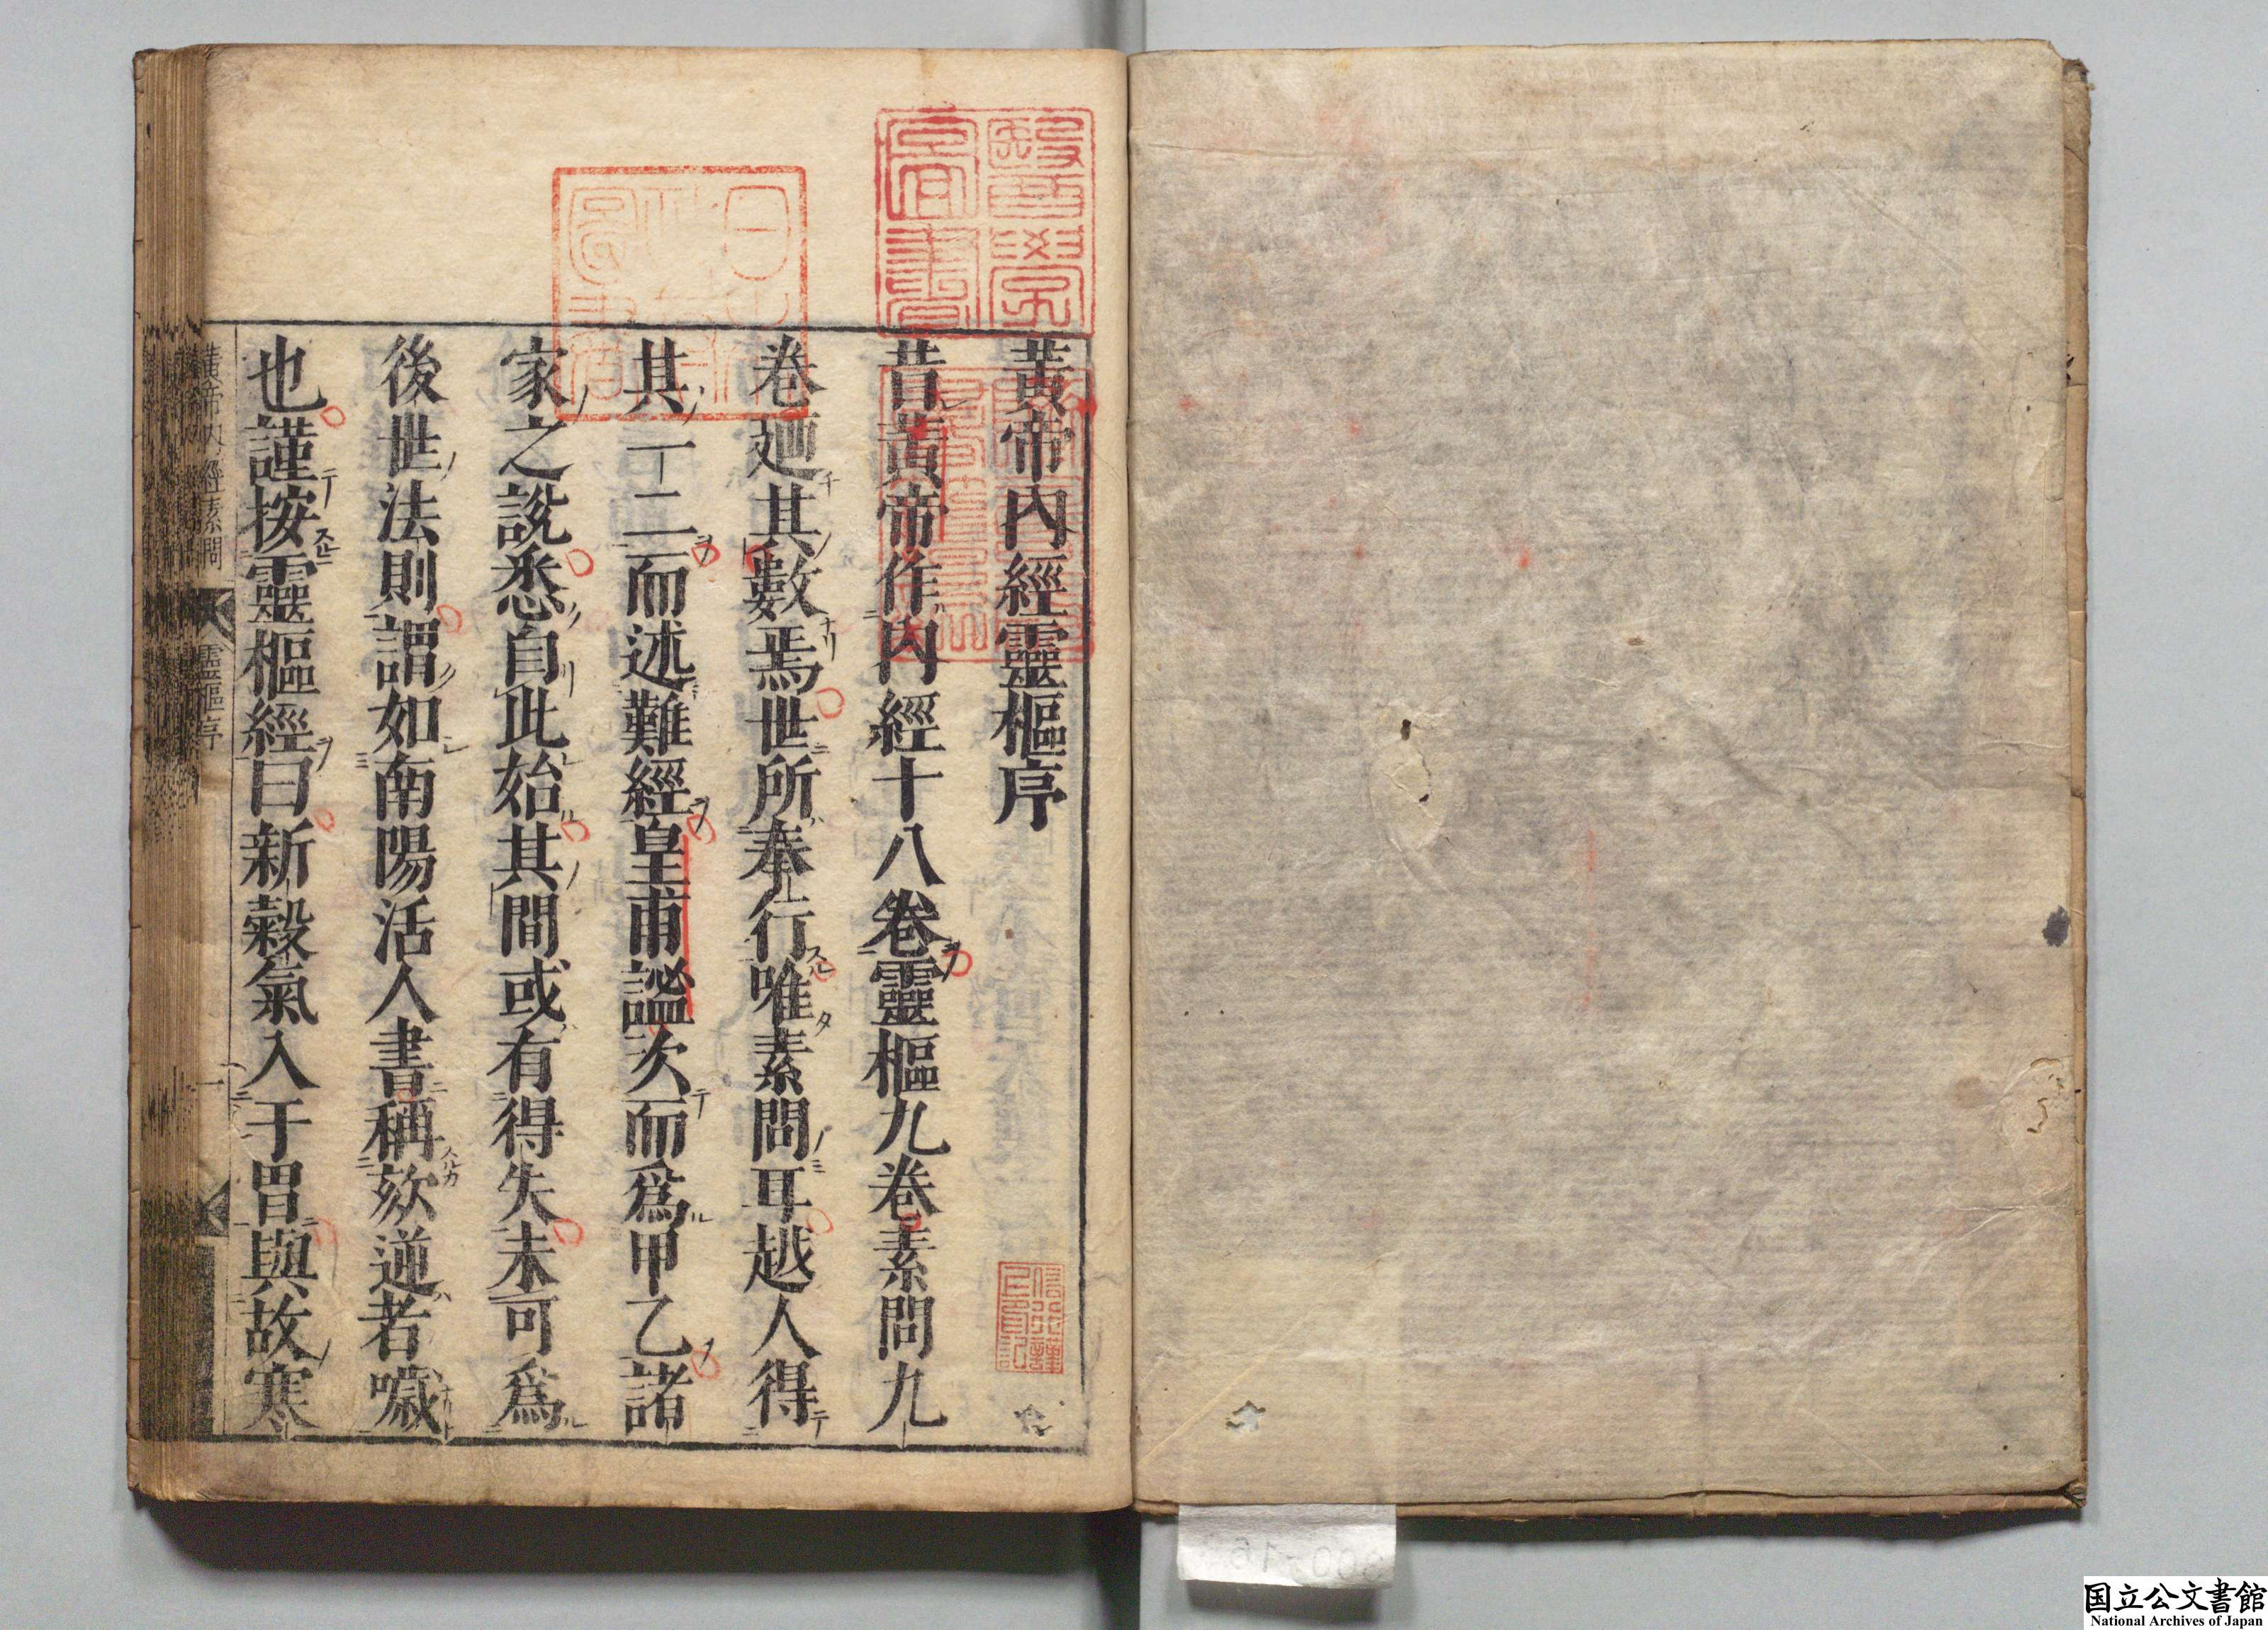 黃帝內經靈樞序
昔黃帝作內經十八卷靈樞九卷素問九
卷廼其數焉世所奉行唯素問耳越人得
其一二而述難經皇甫謐次而爲甲乙諸
家之說悉自此始其間或有得失未可爲
後世法則謂如南陽活人書稱欬逆者噦
也謹按靈樞經曰新穀氣入于胃與故寒
黃帝內經素問
靈樞序
一
醫學
昌書
國立公文書館
National Archives of Japan